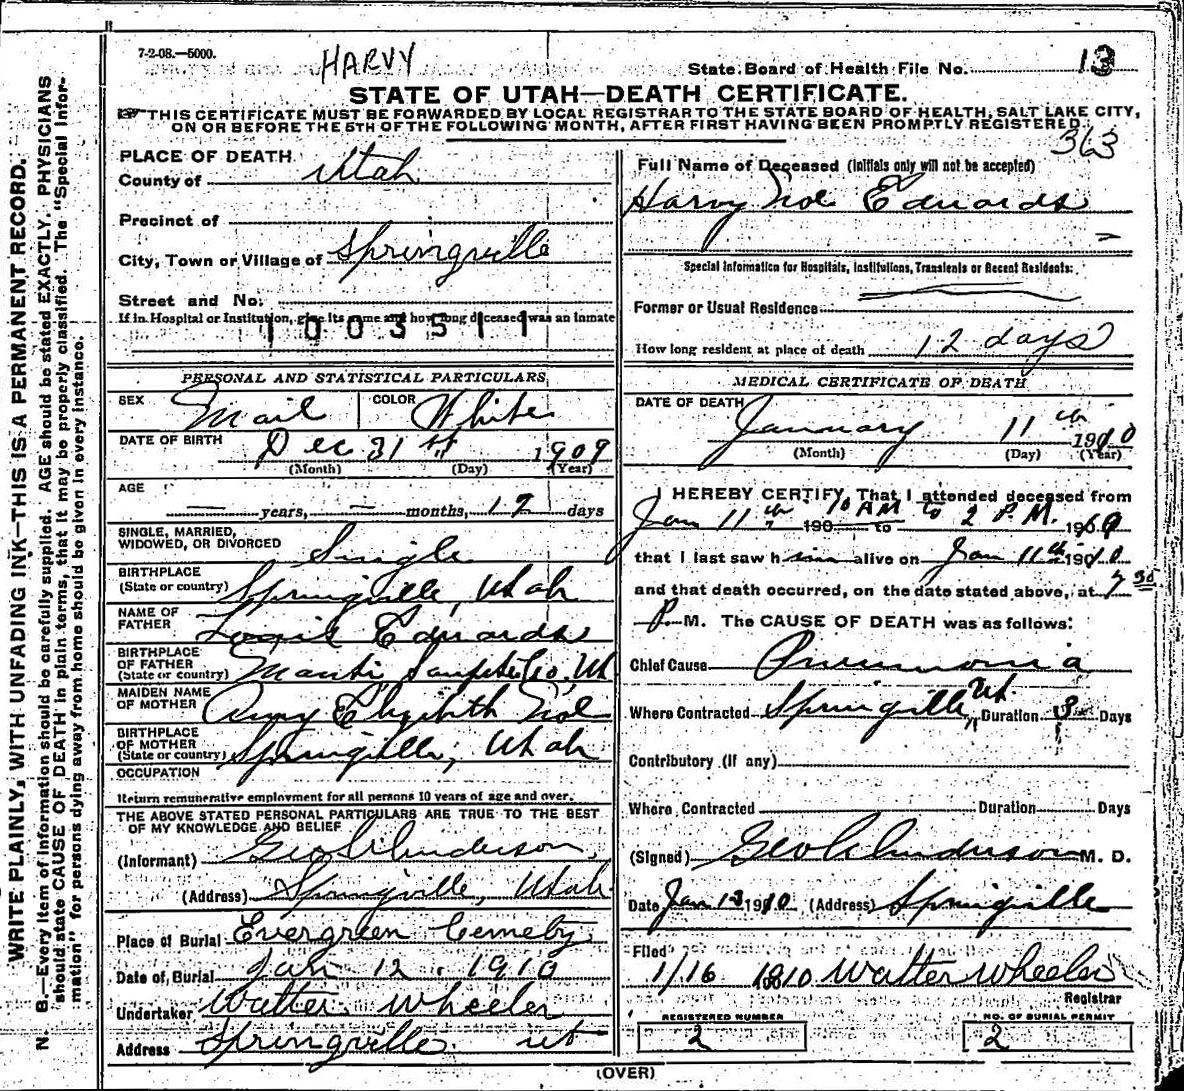 WRITE PLAINLY, WITH UNFADING INK—THIS IS A PERMANENT RECORD.
N. B.—Every item of information should be carefully supplied. AGE should be stated EXACTLY. PHYSICIANS
should state CAUSE OF DEATH in plain terms, that it may be properly classified. The "Special Infor-
mation" for persons dying away from home should be given in every instance.
7-2-08.—5000.
HARVY
State Board of Health File No. 13
STATE OF UTAH—DEATH CERTIFICATE.
THIS CERTIFICATE MUST BE FORWARDED BY LOCAL REGISTRAR TO THE STATE BOARD OF HEALTH, SALT LAKE CITY,
ON OR BEFORE THE 5TH OF THE FOLLOWING MONTH, AFTER FIRST HAVING BEEN PROMPTLY REGISTERED.
363
PLACE OF DEATH
County of Utah
Precinct of
City, Town or Village of Springville
Street and No.
If in Hospital or Institution, give its name and how long deceased was an inmate
1003511
PERSONAL AND STATISTICAL PARTICULARS
SEX Mail COLOR White
DATE OF BIRTH Dec 31st 1909
(Month) (Day) (Year)
AGE
— years, — months, 12 days
SINGLE, MARRIED,
WIDOWED, OR DIVORCED Single
BIRTHPLACE
(State or country) Springville, Utah
NAME OF
FATHER Edwards
BIRTHPLACE
OF FATHER
(State or country) Manti Sanpete Co. Ut
MAIDEN NAME
OF MOTHER Amy Elizibith
BIRTHPLACE
OF MOTHER
(State or country) Springville, Utah
OCCUPATION
Return remunerative employment for all persons 10 years of age and over.
THE ABOVE STATED PERSONAL PARTICULARS ARE TRUE TO THE BEST
OF MY KNOWLEDGE AND BELIEF
(Informant) Geo Anderson
(Address) Springville, Utah
Place of Burial Evergreen Cemety
Date of Burial Jan 12. 1910
Undertaker Walter Wheeler
Address Springville. ut
Full Name of Deceased (initials only will not be accepted)
Harvy Edwards
Special Information for Hospitals, Institutions, Transients or Recent Residents:
Former or Usual Residence
How long resident at place of death 12 days
MEDICAL CERTIFICATE OF DEATH
DATE OF DEATH
January 11th 1910
(Month) (Day) (Year)
I HEREBY CERTIFY, That I attended deceased from
Jan 11th 10 AM 190 to 2 P.M. 190
that I last saw him alive on Jan 11th 1910
and that death occurred, on the date stated above, at 7 30
P. M. The CAUSE OF DEATH was as follows:
Chief Cause Pneumonia
Where Contracted Springville Ut. Duration 3 Days
Contributory (If any)
Where Contracted Duration Days
(Signed) Geo Anderson M. D.
Date Jan 13 1910 (Address) Springville
Filed
1/16 1910 Walter Wheeler
Registrar
REGISTERED NUMBER
2
NO. OF BURIAL PERMIT
2
(OVER)